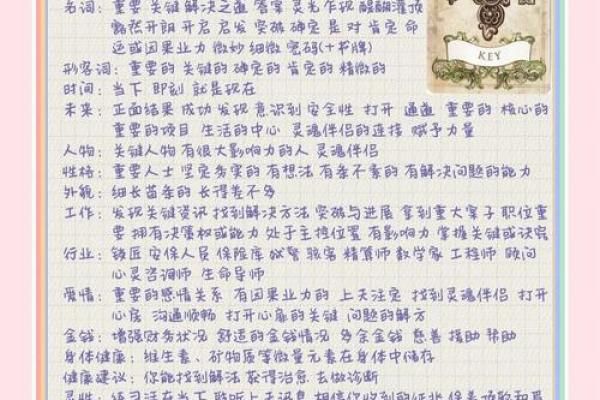 名词: 重要 关键 解决之道 答案 灵光乍现 醍醐灌顶
豁然开朗 开启 启发 突破 确定 是 对 肯定 命
运或因果业力 微妙 细微 密码(+书牌)
KEY
形容词: 重要的 关键的 确定的 肯定的 精微的
时间: 当下 即刻 就是现在
未来: 正面结果 成功 发现 意识到 安全性 打开 通道 重要的 核心的
重要的项目 生活的中心 灵魂伴侣的连接 赋予力量
人物: 关键人物 有很大影响力的人 灵魂伴侣
性格: 重要人士 坚定务实的 有想法 有条不紊的 有解决问题的能力
外貌: 细长苗条的 长得差不多
工作: 发现关键资讯 找到解决方法 突破与进展 拿到重大案子 职位重
要 拥有决策权或能力 处于主控位置 有影响力 掌握关键或诀窍
行业: 锁匠 安保人员 保险库 狱警 骇客 精算师 数学家 工程师 顾问
心灵咨询师 生命导师
爱情: 重要的感情关系 有因果业力的 上天注定 找到灵魂伴侣 打开
心房 沟通顺畅 打开心扉的关键 问题的解方
金钱: 增强财务状况 舒适的金钱情况 多余金钱 慈善 援助 帮助
身体健康: 维生素、矿物质等微量元素在身体中储存
健康建议: 你能找到解法 获得治愈 去做诊断
灵性: 练习活在当下 聆听上天讯息 相信你收到的征兆